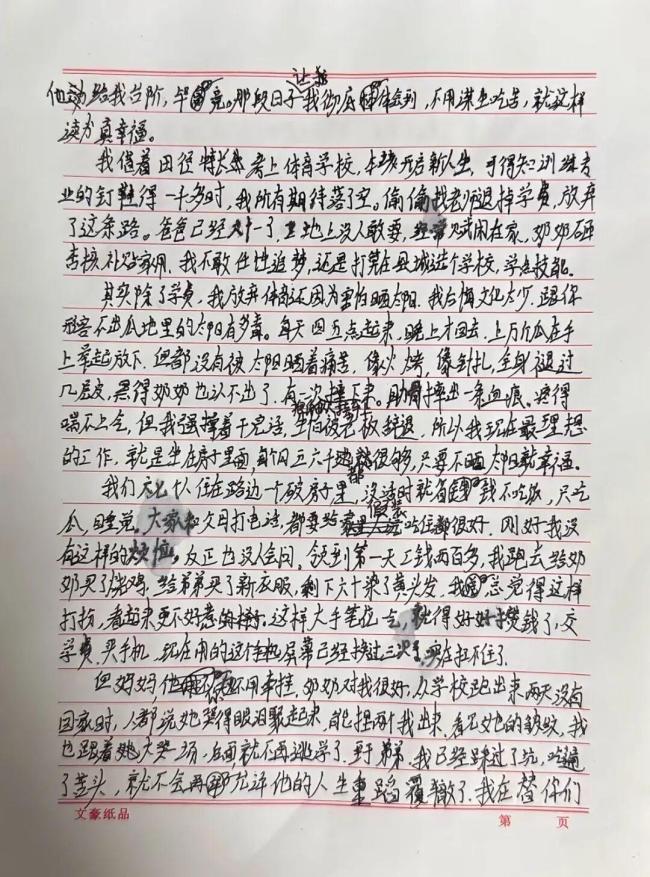 让我
他才给我台阶,毕竟。那段日子我彻底体会到,不用谋生吃苦,就这样
读书真幸福。
我借着田径特长考上体育学校,本该开启新人生,可得知训练专
业的钉鞋得一千多时,我所有期待落了空。偷偷找老师退掉学费,放弃
了这条路。爸爸已经六十一了,工地上没人敢要,经常赋闲在家,奶奶砸
杏核补贴家用,我不敢任性追梦,还是打算在县城选个学校,学点技能。
其实除了学费,我放弃体育还因为害怕晒太阳,我后悔文化太少,跟你
形容不出瓜地里的太阳有多毒。每天四五点起来,晚上才回去,上万斤瓜在手
上拿起放下,但都没有被太阳晒着痛苦,像火烤,像针扎,全身褪过
几层皮,黑得奶奶也认不出了。有一次摔下来,肋骨摔出一条血痕,疼得
喘不上气,但我强撑着干完活,生怕被老板辞退,所以我现在最理想
的工作,就是坐在房子里面,每个月五六千就很够,只要不晒太阳就幸福。
都
我们六七个人住在路边一个破房子里,没活时就省钱不吃饭,只吃
假装
瓜,睡觉。大家和父母打电话,都要给家里人说吃住都很好。刚好我没
有这样的烦恼。反正也没人会问。领到第一天工钱两百多,我跑去给奶
奶买了烧鸡,给弟弟买了新衣服,剩下六十染了黄头发,我总觉得这样
打扮,看起来更不好惹的样子。这样大手笔花完,就得好好攒钱了,交
学费,买手机,现在用的这个手机屏幕已经换过三次,实在扛不住了。
但妈妈你不用牵挂,奶奶对我很好,从学校跑出来两天没有
回家时,人都说她哭得眼泪聚起来,能捏两个我出来。看见她的皱纹,我
也跟着她大哭一场,后面就不再逃学了。至于弟弟,我已经踩过了坑,吃遍
了苦头,就不会再允许他的人生重蹈覆辙了。我在替你们
文豪纸品
第 页